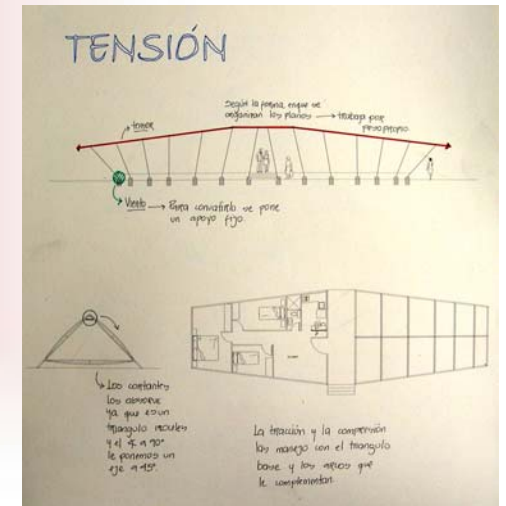 TENSIÓN
Según la forma en que se
organizan los planos → trabaja por
peso propio.
tensor
Viento → Para convatirlo se pone
un apoyo fijo.
Los cortantes
los absorve
ya que es un
triangulo
y el 4 a 90°
le ponemos un
eje a 45°.
La tracción y la compresión
las manejo con el triangulo
base y los arcos que
le complementan.